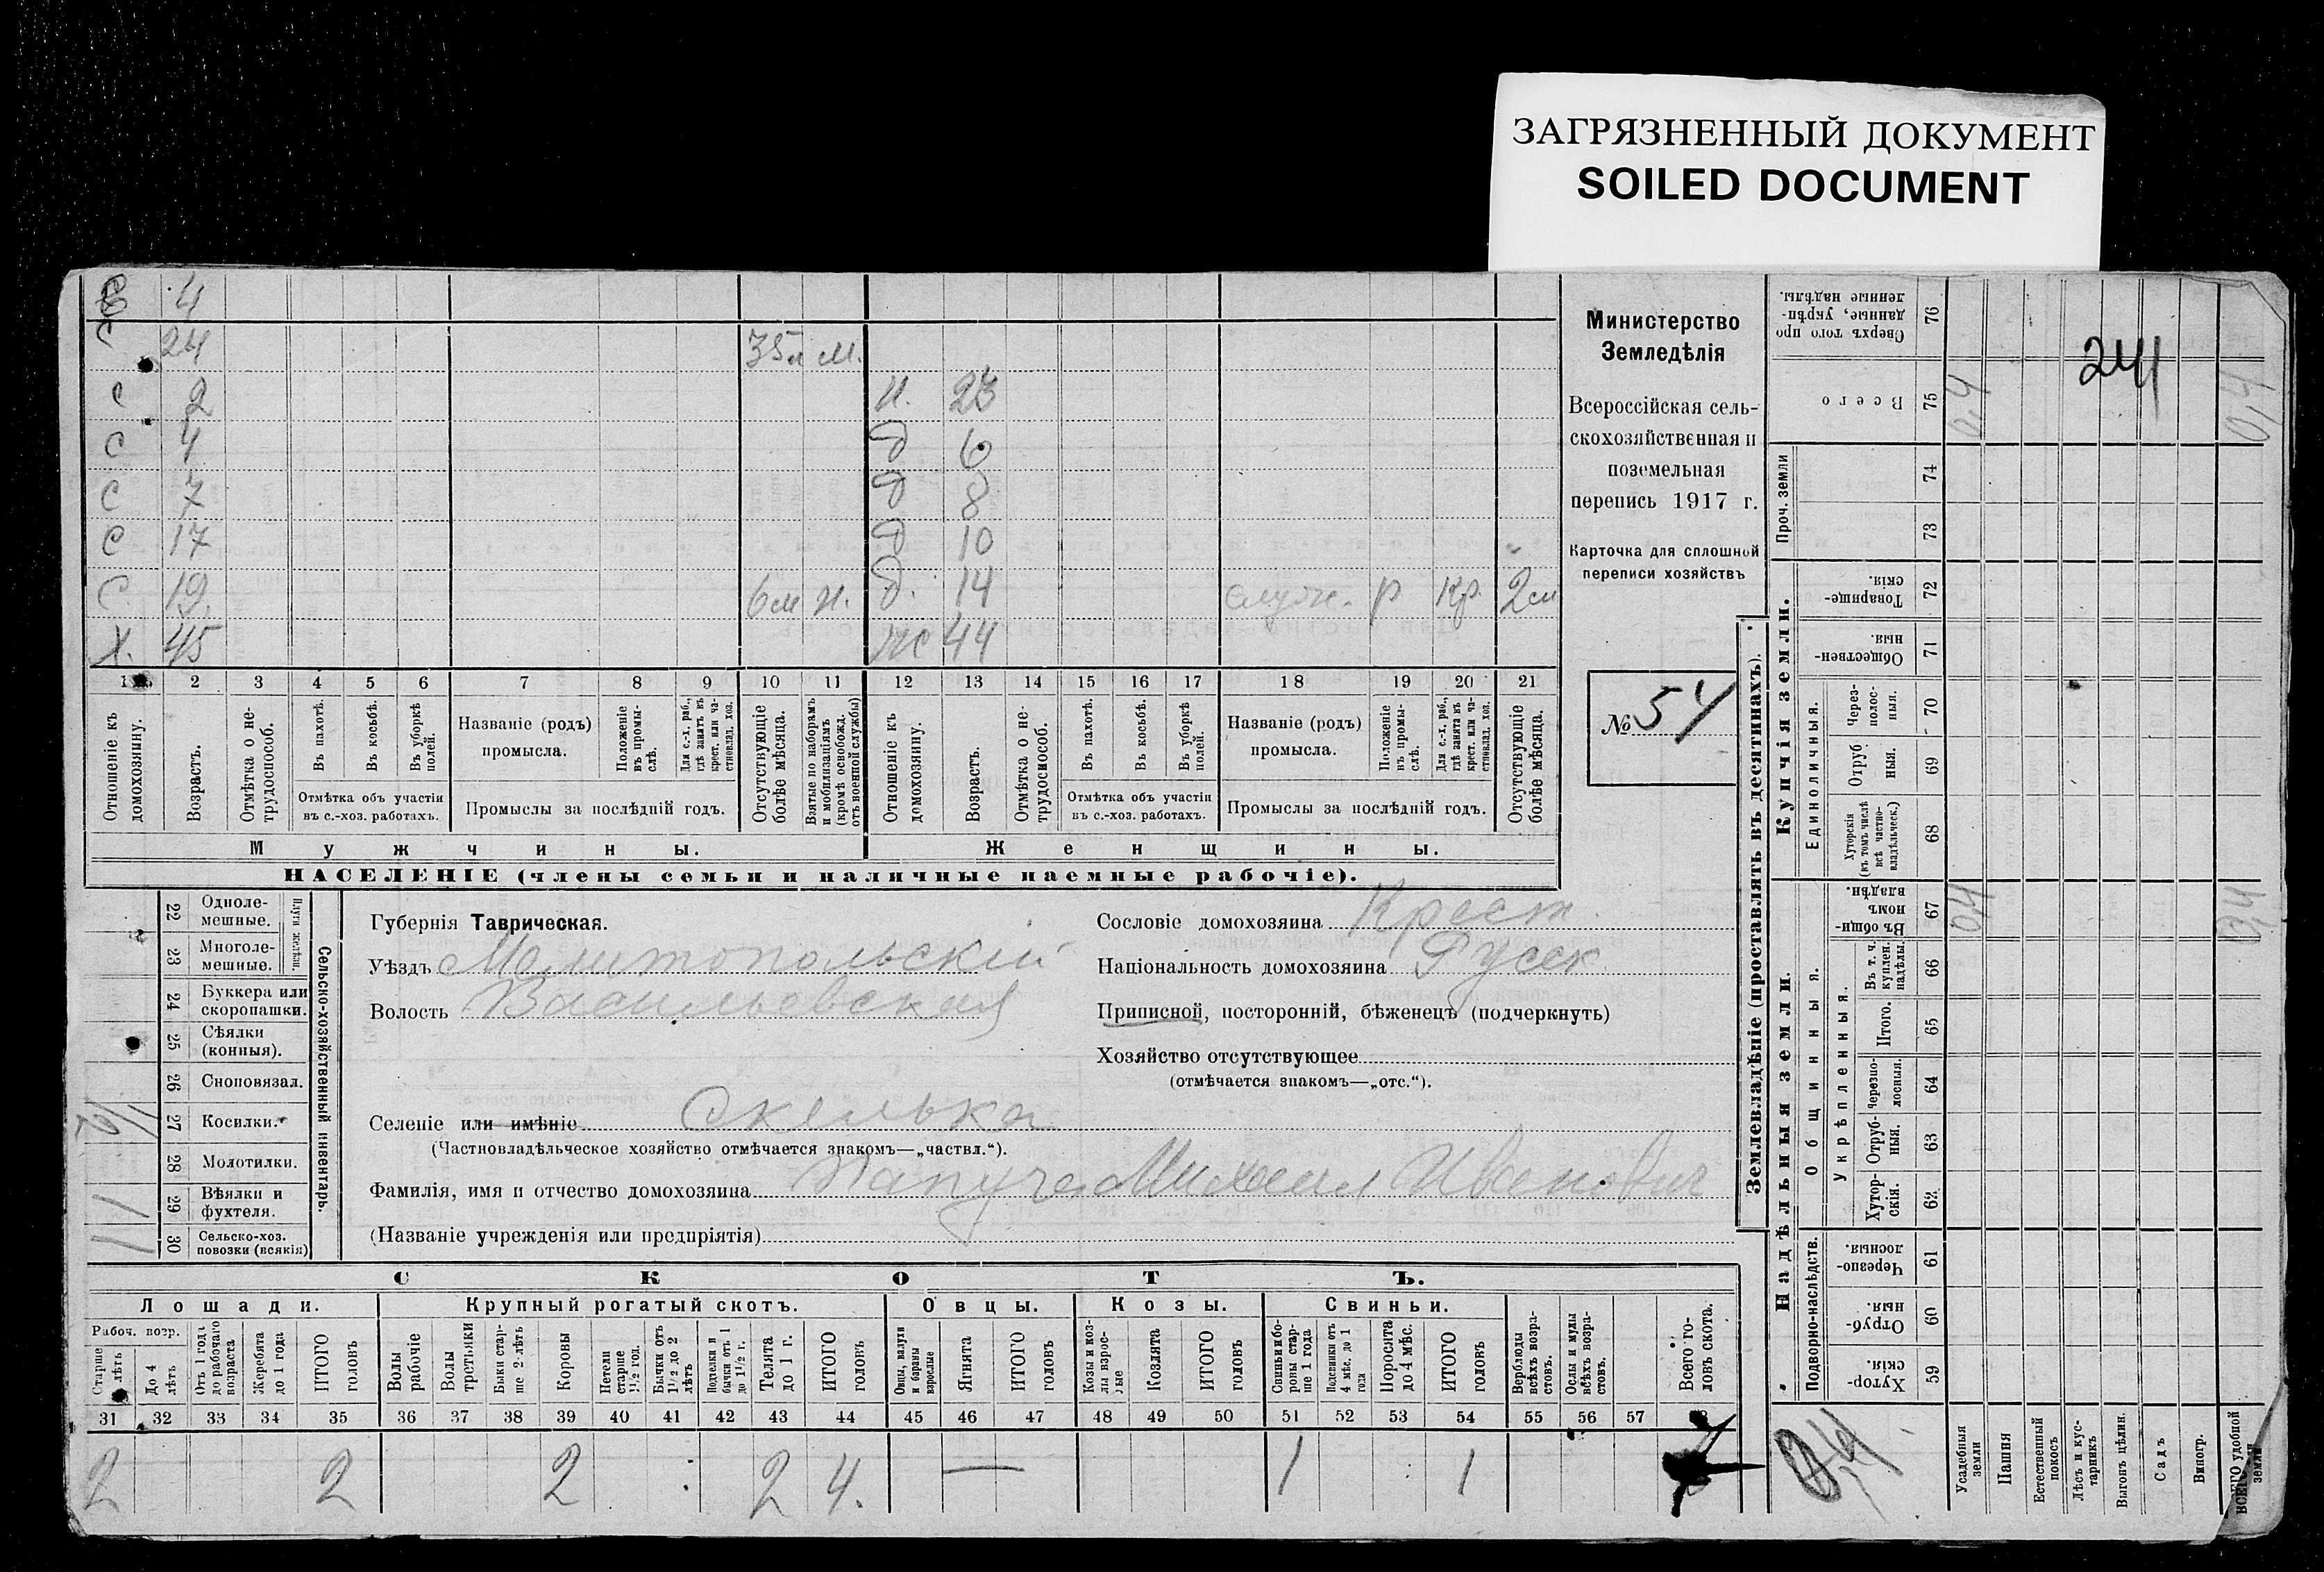 ЗАГРЯЗНЕННЫЙ ДОКУМЕНТ
SOILED DOCUMENT
С 4
С 24 35 м.
С 2 н. 23
С 4 д 6
С 7 д 8
С 17 д 10
С 19 6м н. д. 14 служ. р Кр. 2м
Х. 45 ж 44
2 3 4 5 6 7 8 9 10 11 12 13 14 15 16 17 18 19 20 21
Отношеніе къ домохозяину.
Возрастъ.
Отмѣтка о нетрудоспособ.
Въ пахотѣ.
Въ косьбѣ.
Въ уборкѣ полей.
Отмѣтка объ участіи
въ с.-хоз. работахъ.
Названіе (родъ)
промысла.
Положеніе въ промыслѣ.
Для с.-х. раб., гдѣ занятъ въ крест. или частновлад. хоз.
Промыслы за послѣдній годъ.
Отсутствующіе болѣе мѣсяца.
Взятые по наборамъ и мобилизаціямъ (кромѣ освобожд. отъ военной службы)
Отношеніе къ домохозяину.
Возрастъ.
Отмѣтка о нетрудоспособ.
Въ пахотѣ.
Въ косьбѣ.
Въ уборкѣ полей.
Отмѣтка объ участіи
въ с.-хоз. работахъ.
Названіе (родъ)
промысла.
Положеніе въ промыслѣ.
Для с.-х. раб., гдѣ занята въ крест. или частновлад. хоз.
Промыслы за послѣдній годъ.
Отсутствующіе болѣе мѣсяца.
Мужчины. Женщины.
НАСЕЛЕНІЕ (члены семьи и наличные наемные рабочіе).
Министерство
Земледѣлія
Всероссійская сель-
скохозяйственная и
поземельная
перепись 1917 г.
Карточка для сплошной
переписи хозяйствъ
№ 54
22 Одноле-
мешные.
23 Многоле-
мешные.
Плуги желѣзн.
24 Буккера или
скоропашки.
25 Сѣялки
(конныя).
26 Сноповязал.
27 Косилки.
28 Молотилки.
29 Вѣялки и
фухтеля.
30 Сельско-хоз.
повозки (всякія)
Сельско-хозяйственный инвентарь.
Губернія Таврическая.
Уѣздъ Мелитопольскій
Волость Васильевская
Селеніе или имѣніе Скелька
(Частновладѣльческое хозяйство отмѣчается знакомъ—„частвл.“).
Фамилія, имя и отчество домохозяина Михаил Иванович
(Названіе учрежденія или предпріятія)
Сословіе домохозяина Крест.
Національность домохозяина Русск.
Приписной, посторонній, бѣженецъ (подчеркнуть)
Хозяйство отсутствующее
(отмѣчается знакомъ—„отс.“).
СКОТЪ.
Лошади. Крупный рогатый скотъ. Овцы. Козы. Свиньи.
Рабоч. возр.
Старше лѣтъ
До 4 лѣтъ
Отъ 1 года до рабочаго возраста
Жеребята до 1 года
ИТОГО головъ
Волы рабочіе
Волы третьяки
Быки старше 2 лѣтъ
Коровы
Нетели старше 1½ год.
Бычки отъ 1½ до 2 лѣтъ
Подтелки и бычки отъ 1 до 1½ г.
Телята до 1 г.
ИТОГО головъ
Овцы, валухи и бараны взрослые
Ягнята
ИТОГО головъ
Козы и козлы взрослые
Козлята
ИТОГО головъ
Свиньи и бороны старше 1 года
Подсвинки отъ 4 мѣс. до 1 года
Поросята до 4 мѣс.
ИТОГО головъ
Верблюды всѣхъ возрастовъ.
Ослы и мулы всѣхъ возрастовъ.
Всего головъ скота.
31 32 33 34 35 36 37 38 39 40 41 42 43 44 45 46 47 48 49 50 51 52 53 54 55 56 57
2 2 2 2 4. — 1 1
Землевладѣніе (проставлять въ десятинахъ).
Надѣльныя земли. Купчія земли.
Подворно-наслѣдств.
Общинныя.
Укрѣпленныя.
Единоличныя.
Проч. земли
Сверхъ того проданные, укрѣпленные надѣлы. 76
Всего 75 0,4 0,4
74
73
Товарищескія. 72
Общественныя. 71
Черезполосныя. 70
Отрубныя. 69
Хуторскія (въ томъ числѣ всѣ частновладѣльческ.) 68
Въ общинномъ владѣн. 67 0,4 0,4
Въ т. ч. куплен. надѣлы. 66
Итого. 65
Черезполосныя. 64
Отрубныя. 63
Хуторскія. 62
Черезполосныя. 61
Отрубныя. 60
Хуторскія. 59
241
Усадебныя земли
Пашня
Естественный покосъ
Лѣсъ и кустарникъ
Выгонъ цѣлин.
Садъ
Виногр.
ВСЕГО удобной земли